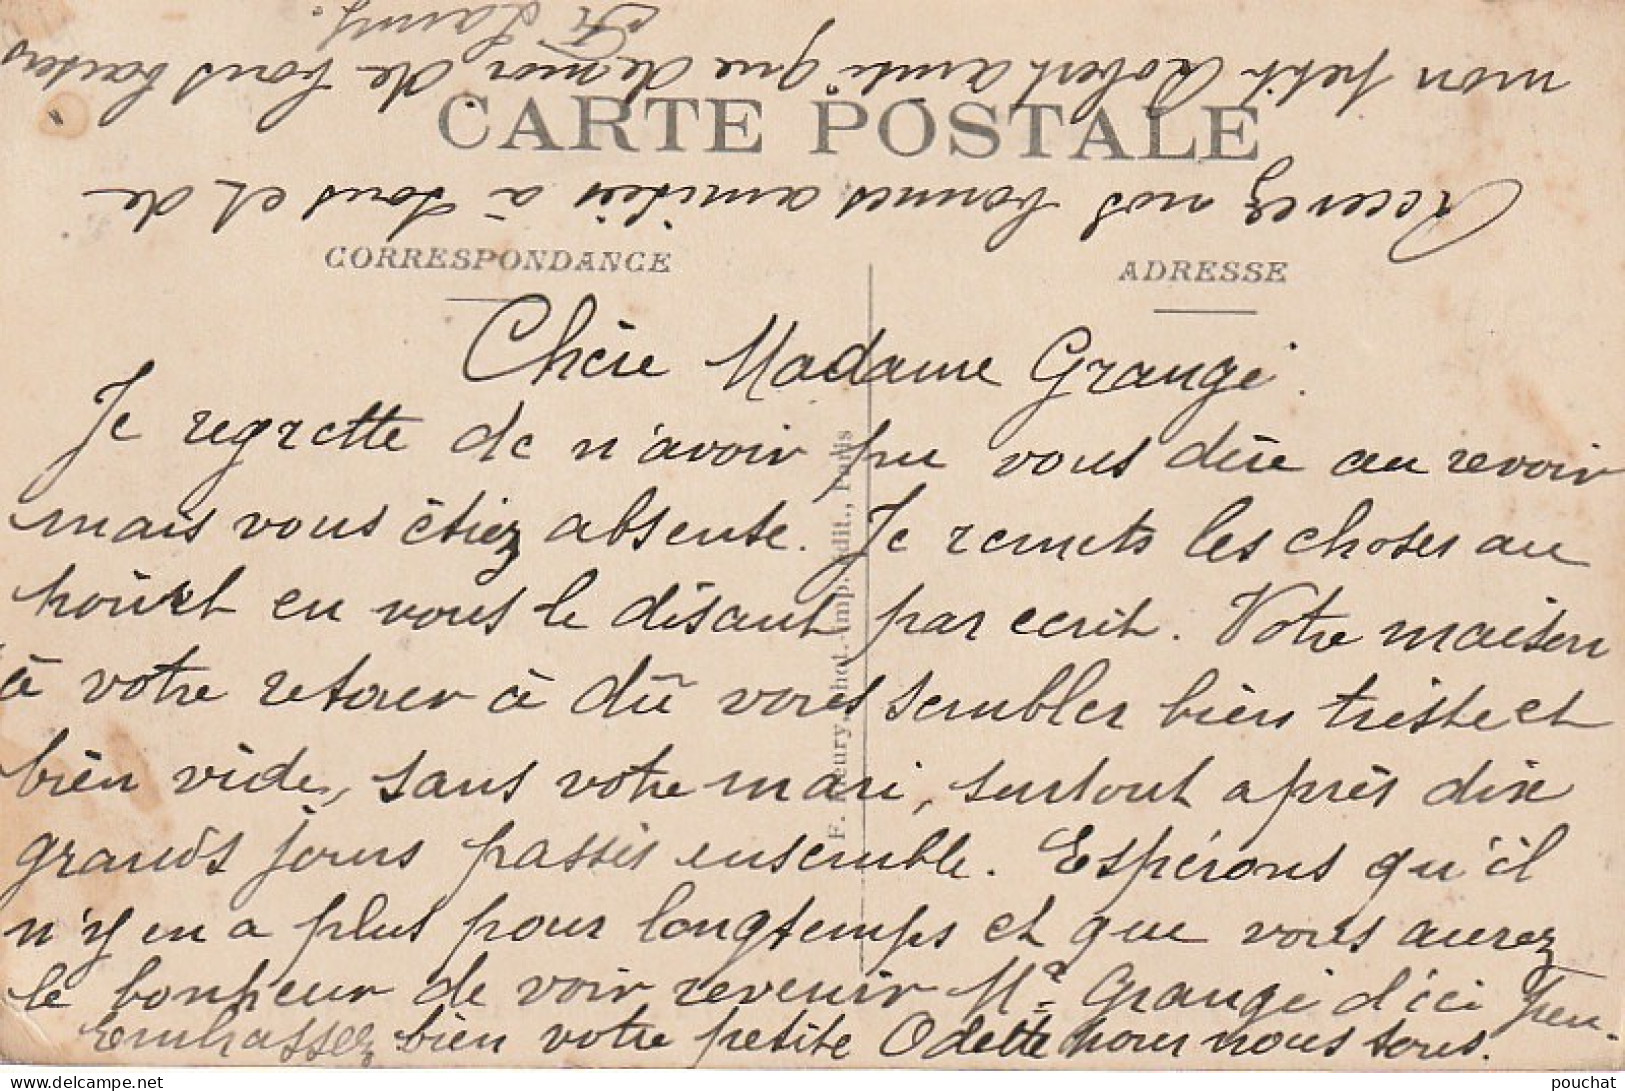 CARTE POSTALE
CORRESPONDANCE
ADRESSE
Chère Madame Grangé.
Je regrette de n'avoir pu vous dire au revoir
mais vous étiez absente. Je remets les choses au
en vous le disant par ecrit. Votre maison
à votre retour à dû vous sembler bien triste et
bien vide, sans votre mari, surtout après dix
grands jours passés ensemble. Espérons qu'il
n'y en a plus pour longtemps et que vous aurez
le bonheur de voir revenir Mr Grangé d'ici peu.
Embrassez bien votre petite Odette pour nous tous.
Recevez nos bonnes amitiés à tous et de
mon petit Robert ainsi que de moi de bons baisers
F. Fleury, phot.-imp.-édit., Paris
pouchat